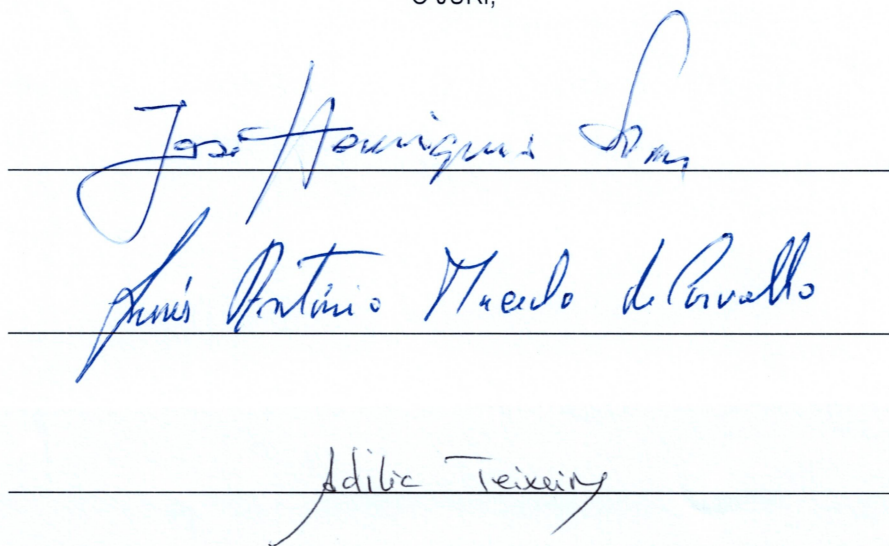 O JÚRI,
José Henriques
Luís António Macedo de Carvalho
Adília Teixeira